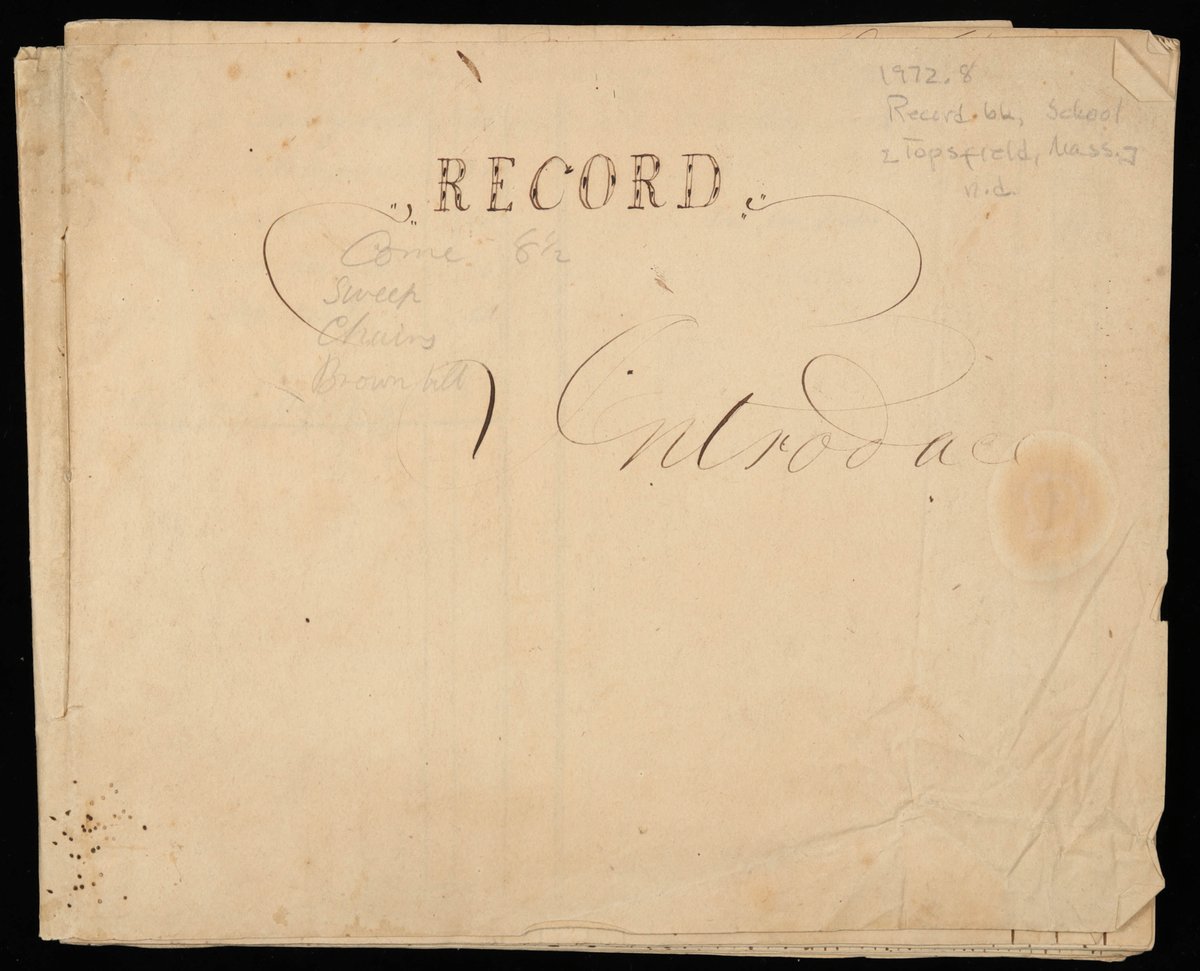 1972.8
Record bk, School
[Topsfield, Mass.]
n.d.
„ RECORD „
Come 8½
Sweep
Chairs
Brown
Introduce